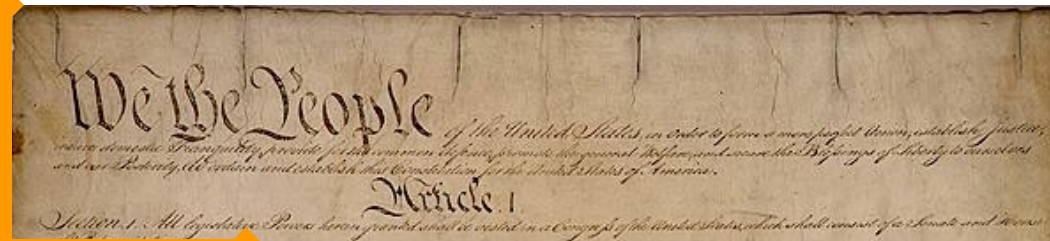 We the People of the United States, in Order to form a more perfect Union, establish Justice,
insure domestic Tranquility, provide for the common defence, promote the general Welfare, and secure the Blessings of Liberty to ourselves
and our Posterity, do ordain and establish this Constitution for the United States of America.
Article. I.
Section. 1. All legislative Powers herein granted shall be vested in a Congress of the United States, which shall consist of a Senate and House